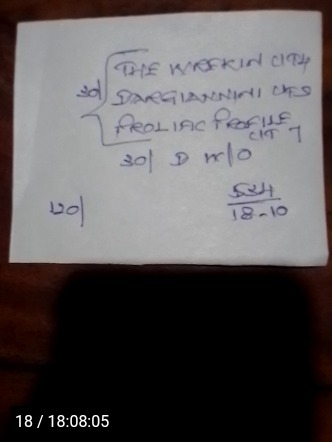 30/ THE WREKIN CIT4
DARGIANNINI CF3
PROLIFIC PROFILE
CIT 7
30/ D W/O
120/
534
18-10
18 / 18:08:05